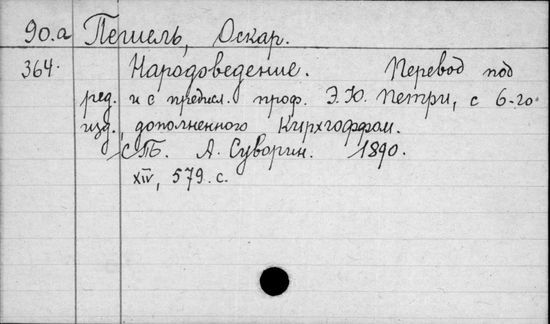 90.а Пешель, Оскар.
364. Народоведение. Перевод под
ред. и с предисл. проф. Э.Ю. Петри, с 6-го
изд., дополненного Кирхгоффом.
СПБ. А. Суворин. 1890.
XIV, 579. с.